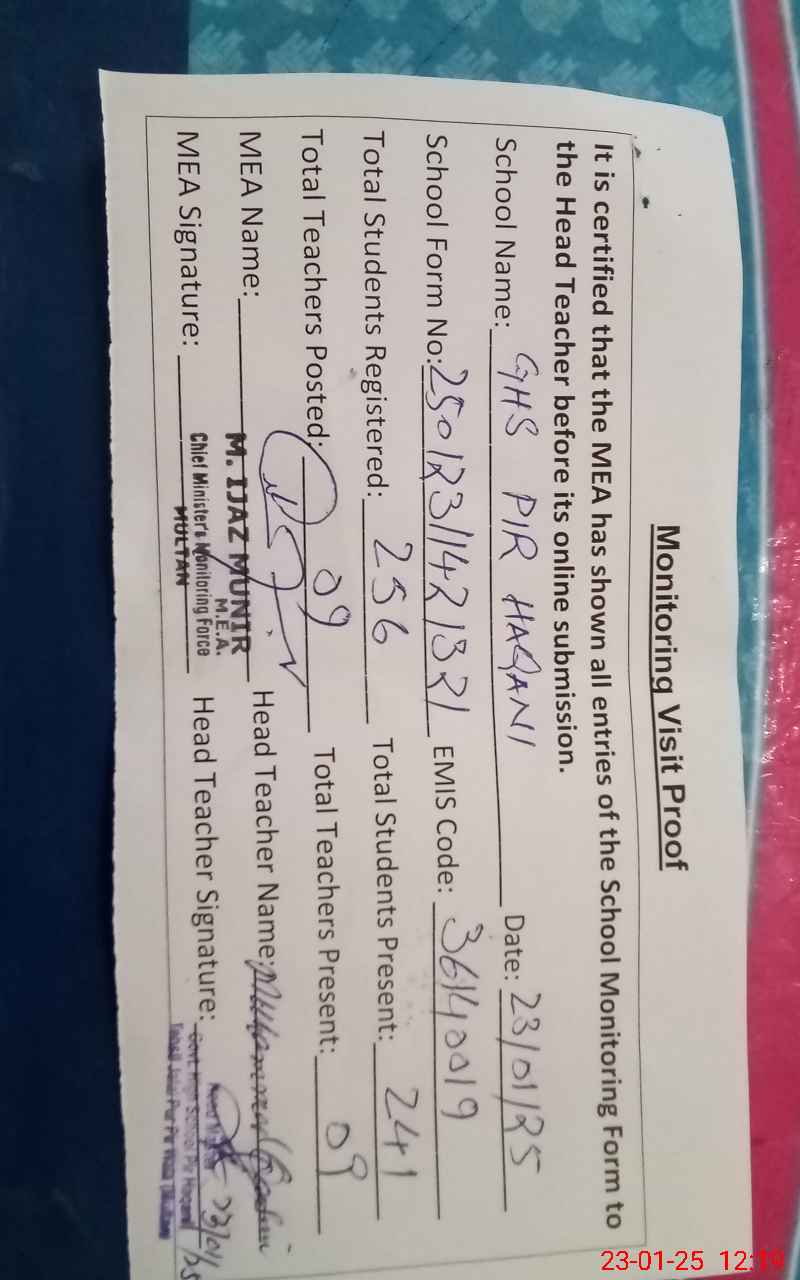 Monitoring Visit Proof
It is certified that the MEA has shown all entries of the School Monitoring Form to
the Head Teacher before its online submission.
School Name: GHS PIR HAQANI Date: 23/01/25
School Form No: 25012311421321 EMIS Code: 36140019
Total Students Registered: 256 Total Students Present: 241
Total Teachers Posted: 09 Total Teachers Present: 09
MEA Name: M. IJAZ MUNIR Head Teacher Name: Muhammad
M.E.A.
MEA Signature: Chief Minister's Monitoring Force Head Teacher Signature: 23/01/25
MULTAN
Govt. High School Pir
23-01-25 12:19